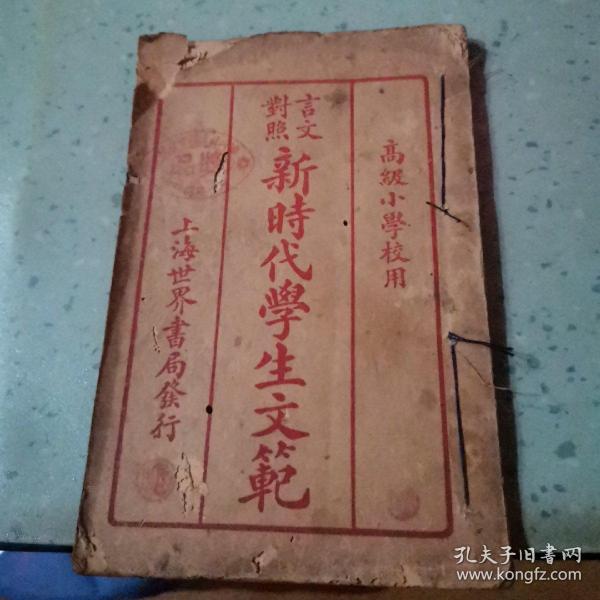 高級小學校用
言文
對照
新時代學生文範
上海世界書局發行
孔夫子旧书网
www.kongfz.com